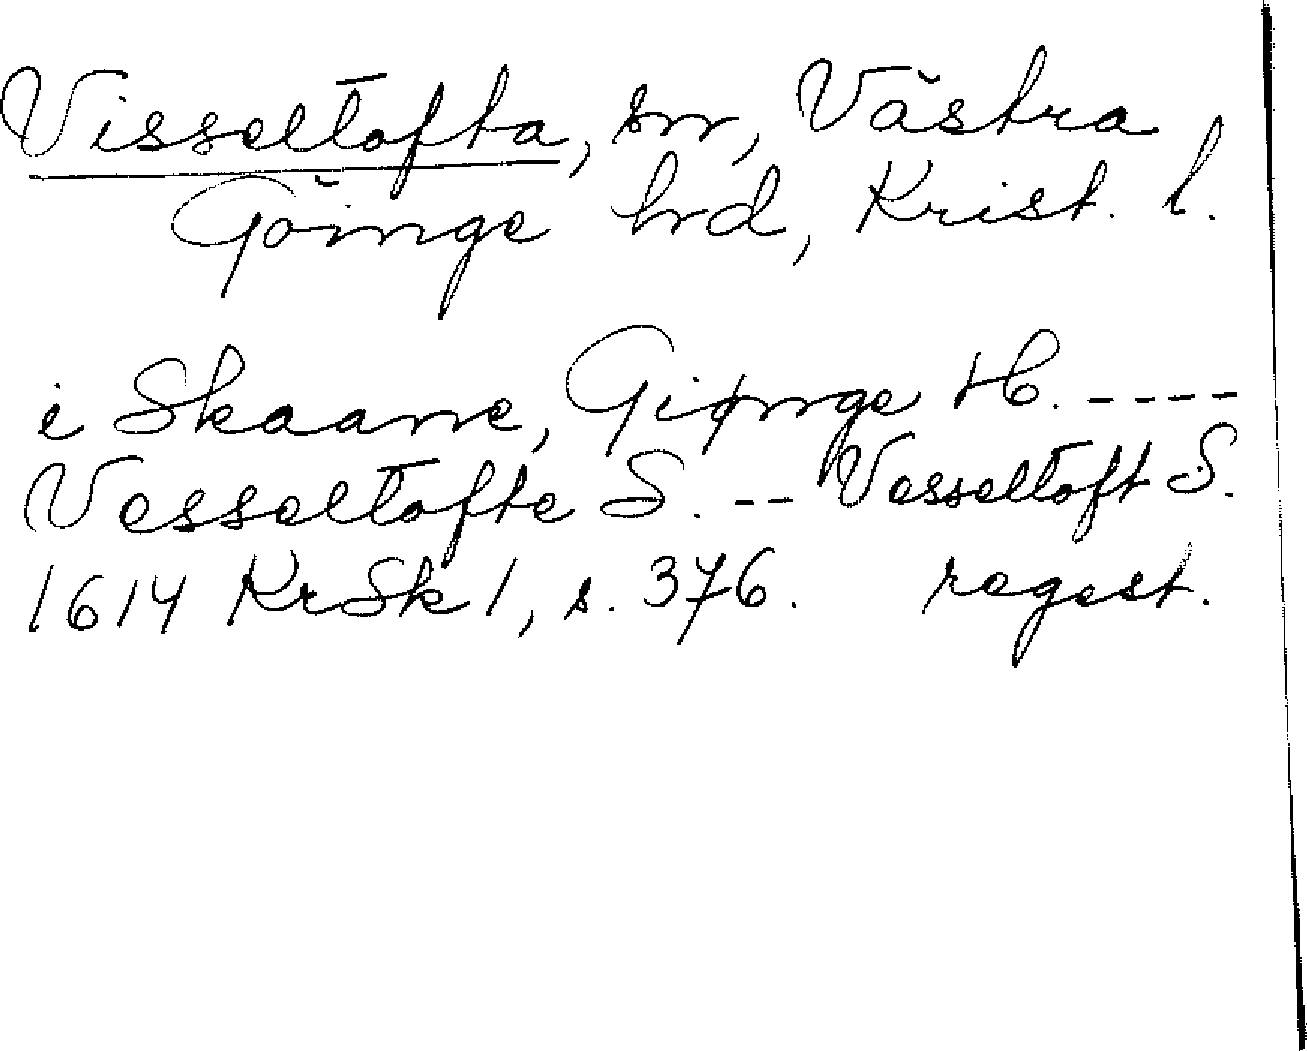 Visseltofta, sn, Västra
Göinge hrd, Krist. l.
i Skaane, Giønge H. ----
Vesseltofte S. -- Vesseltoft S.
1614 KrSk 1, s. 376. regest.